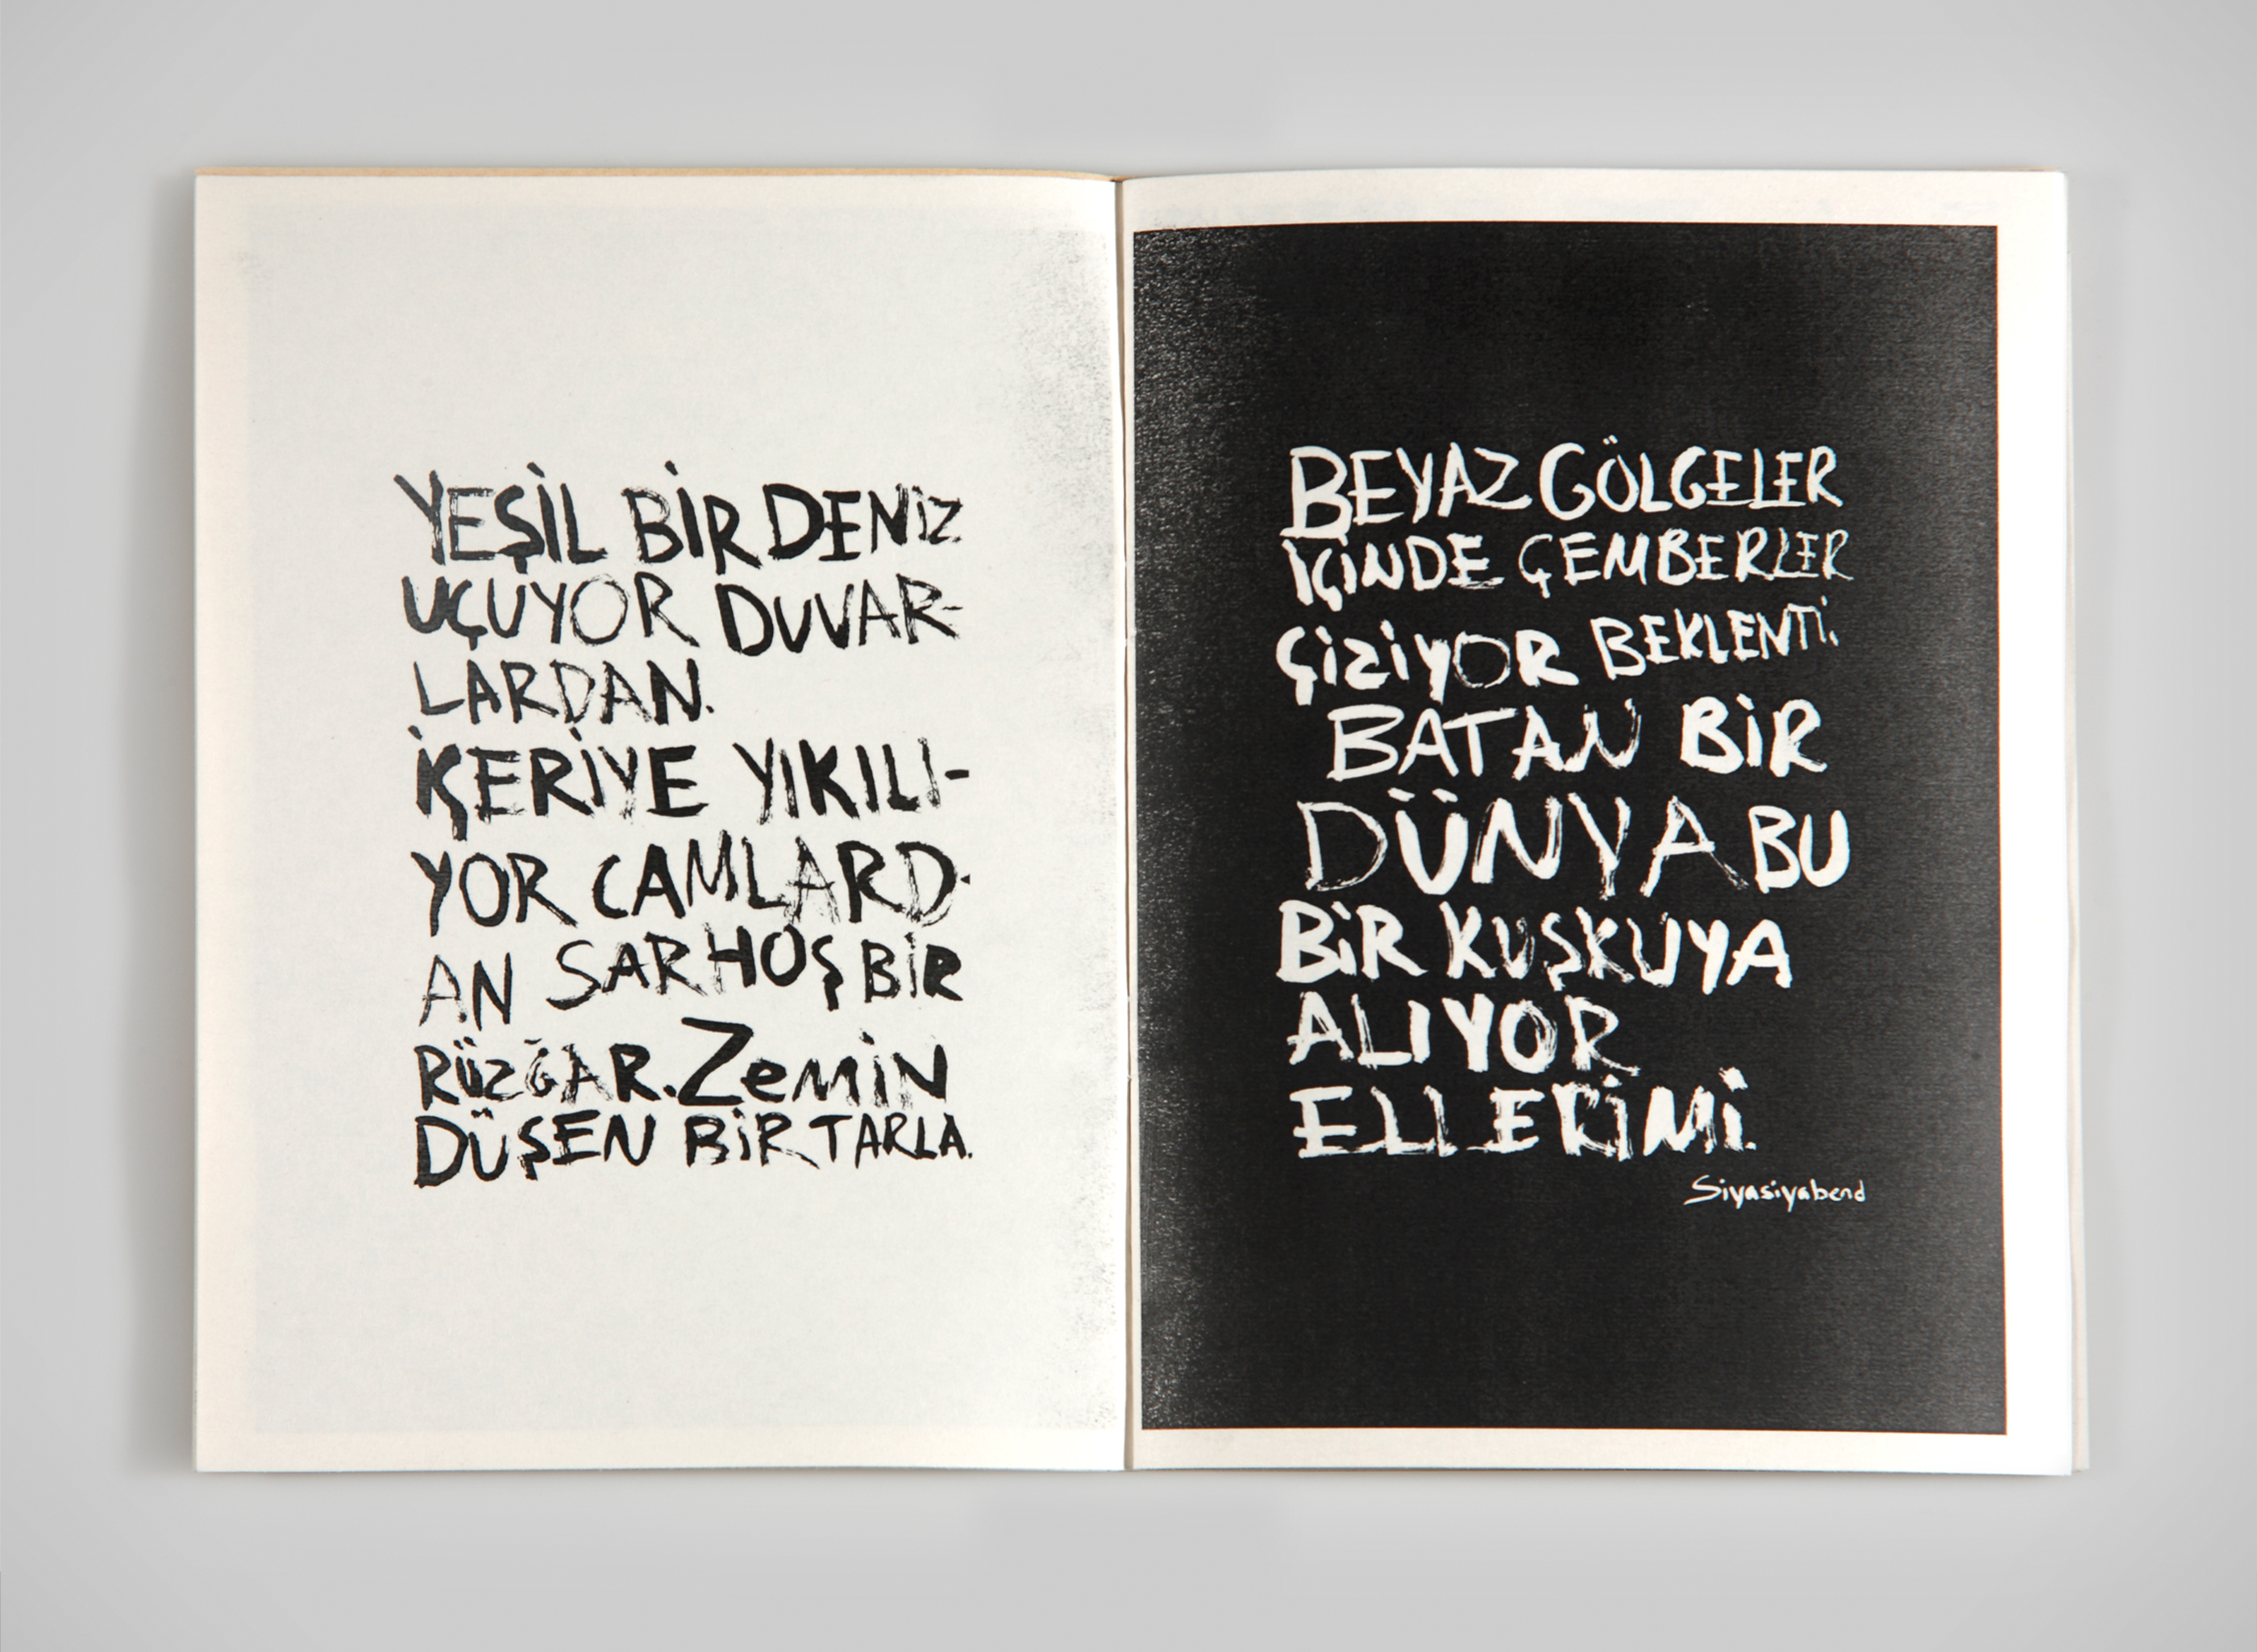 YEŞİL BİR DENİZ
UÇUYOR DUVAR-
LARDAN.
İÇERİYE YIKILI-
YOR CAMLARD-
AN SARHOŞ BİR
RÜZGAR. Zemin
DÜŞEN BİR TARLA.
BEYAZ GÖLGELER
İÇİNDE ÇEMBERLER
ÇİZİYOR BEKLENTİ.
BATAN BİR
DÜNYA BU
BİR KUŞKUYA
ALIYOR
ELLERİMİ.
Siyasiyabend